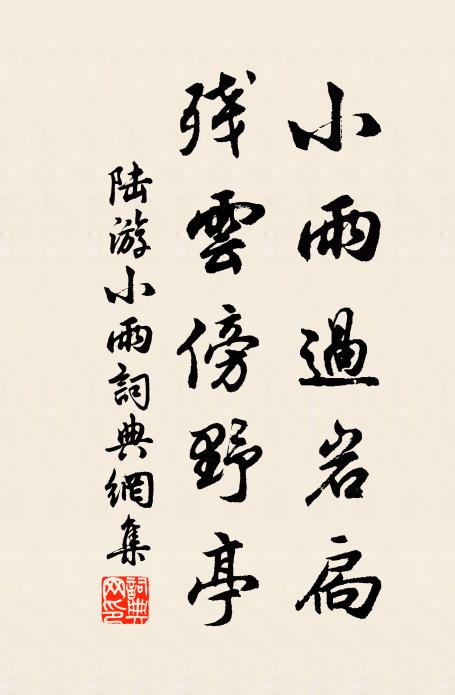 小雨過岩扃
残雲傍野亭
陆游小雨詞典網集
詞典网印